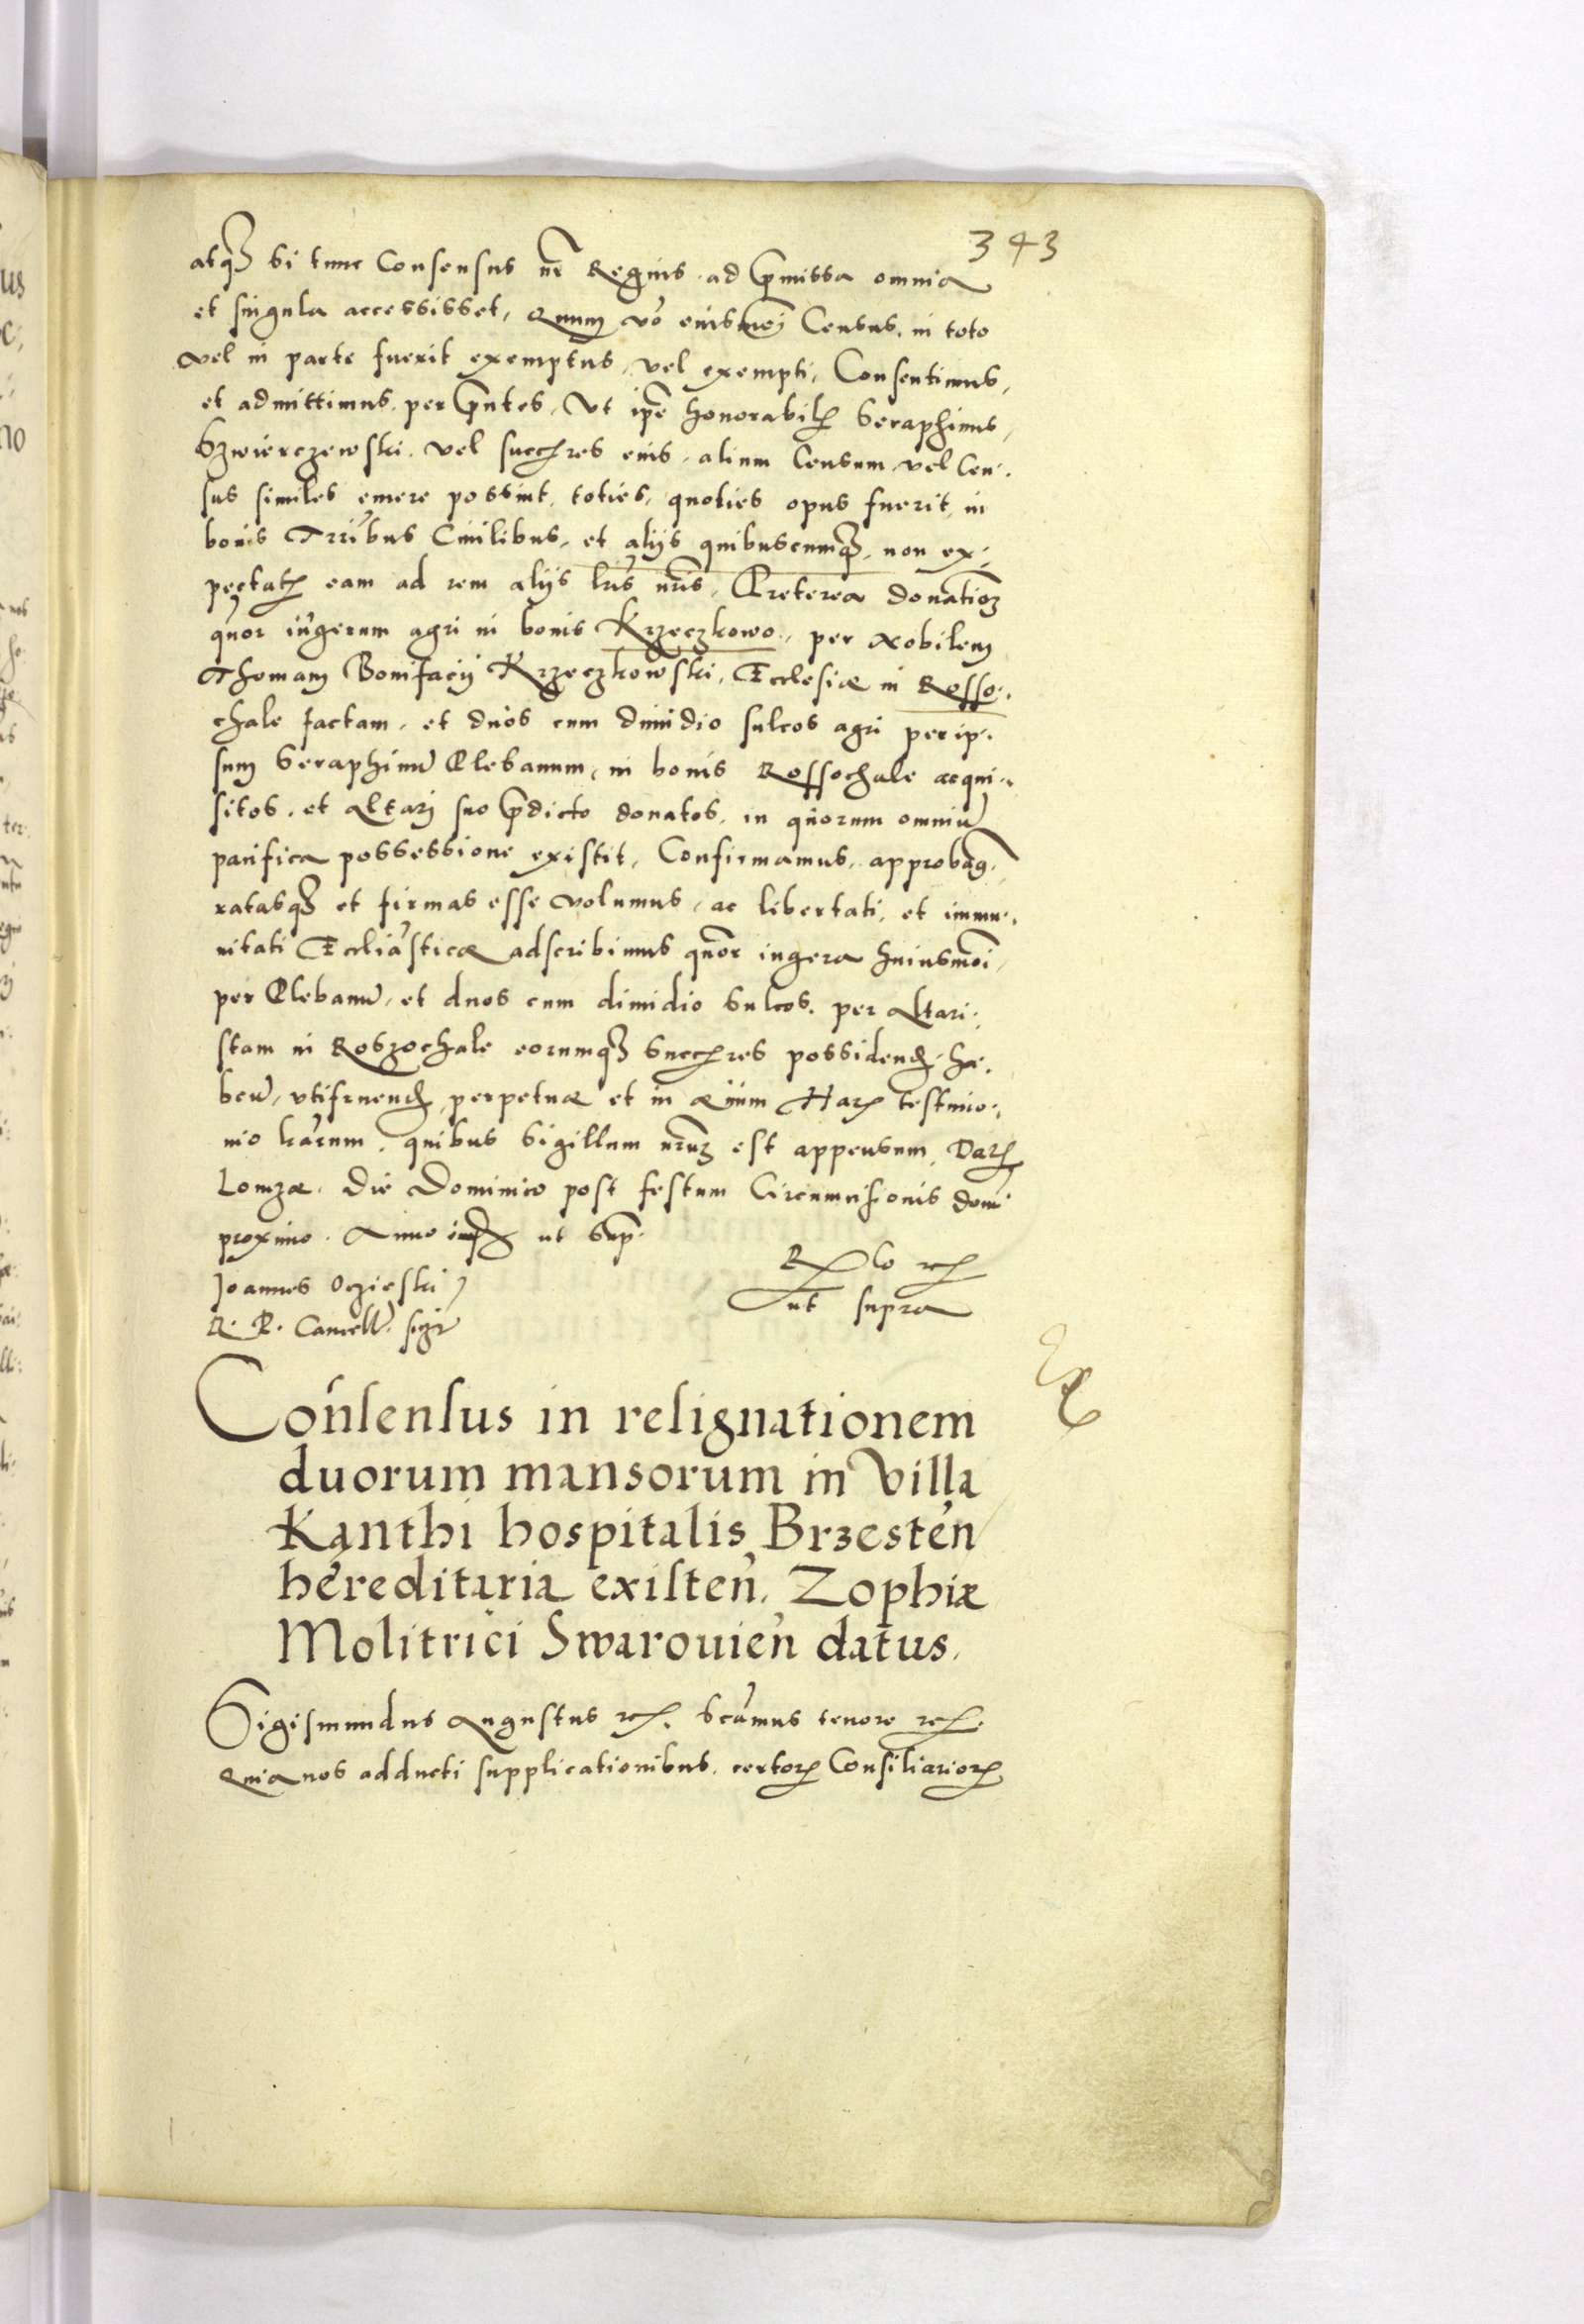 343
atq3 si tunc Consensus nr̃ Regius ad p̃missa omnia
et singula accessisset, Quum vo eiusmo͂i Census, in toto
vel in parte fuerit exemptus, vel exempti, Consentimus,
et admittimus, per p̃ntes, Ut ip̃e honorabil Seraphinus,
Szwierczewski, vel succ̃res eius, alium Censum, vel Cen-
sus similes emere possint, toties, quoties opus fuerit, in
bonis Tr̃ribus Civilibus, et alijs quibuscumq3, non ex-
pectat eam ad rem alijs lr̃is nr̃is, Preterea donatioȝ
q̃uor iugerum agri in bonis Krzeczkowo, per Nobilem
Thomam Bonifacij Krzeczkowski, Ecclesiæ in Rosso-
chale factam, et duos cum dimidio sulcos agri per ip-
sum Seraphinũ Plebanum, in bonis Rossochale acqui-
sitos, et Altari suo p̃dicto donatos, in quorum omniũ
pacifica possessione existit, Confirmamus, approbam9,
ratasq3 et firmas esse volumus, ac libertati, et immu-
nitati Eccliãsticæ adscribimus q̃uor iugera huiusmo͂i,
per Plebanũ, et duos cum dimidio sulcos, per Altari-
stam in Roszochale eorumq3 succ̃res possidend, ha-
beñ, utifruend, perpetuæ et in æuum Har testimo-
nio lr̃arum, quibus Sigillum nr̃uȝ est appensum, Dat
Lomzæ, Die Dominico post festum Circumcisionis domi
proximo. Anno ut sup̃.
Joannes Oczieski
R. P. Cancell. sigt
Rlo etc
ut supra
Consensus in resignationem
duorum mansorum in Villa
Kanthi hospitalis Brzesteñ
hereditaria existeñ, Zophiæ
Molitrici Swarouieñ datus.
Sigismundus Augustus etc. S̃camus tenore etc.
Quia nos adducti supplicationibus, certor Consiliarior